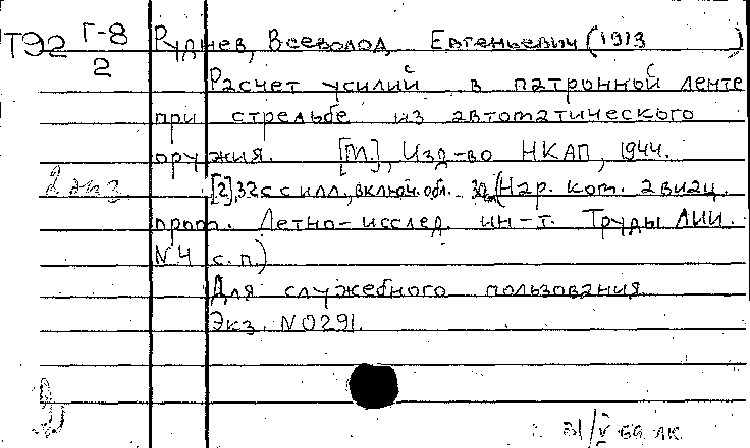 Т92 Г-8 Руднев, Всеволод Евгеньевич (1913 )
2
Расчет усилий в патронной ленте
при стрельбе из автоматического
оружия. [М.], Изд-во НКАП, 1944.
2 экз [2], 32 с с илл., включ. обл. (Нар. ком. авиац.
пром. Летно-исслед. ин-т. Труды ЛИИ.
N 4 с. п.)
Для служебного пользования
Экз. N 0291.
31/V 69 лк